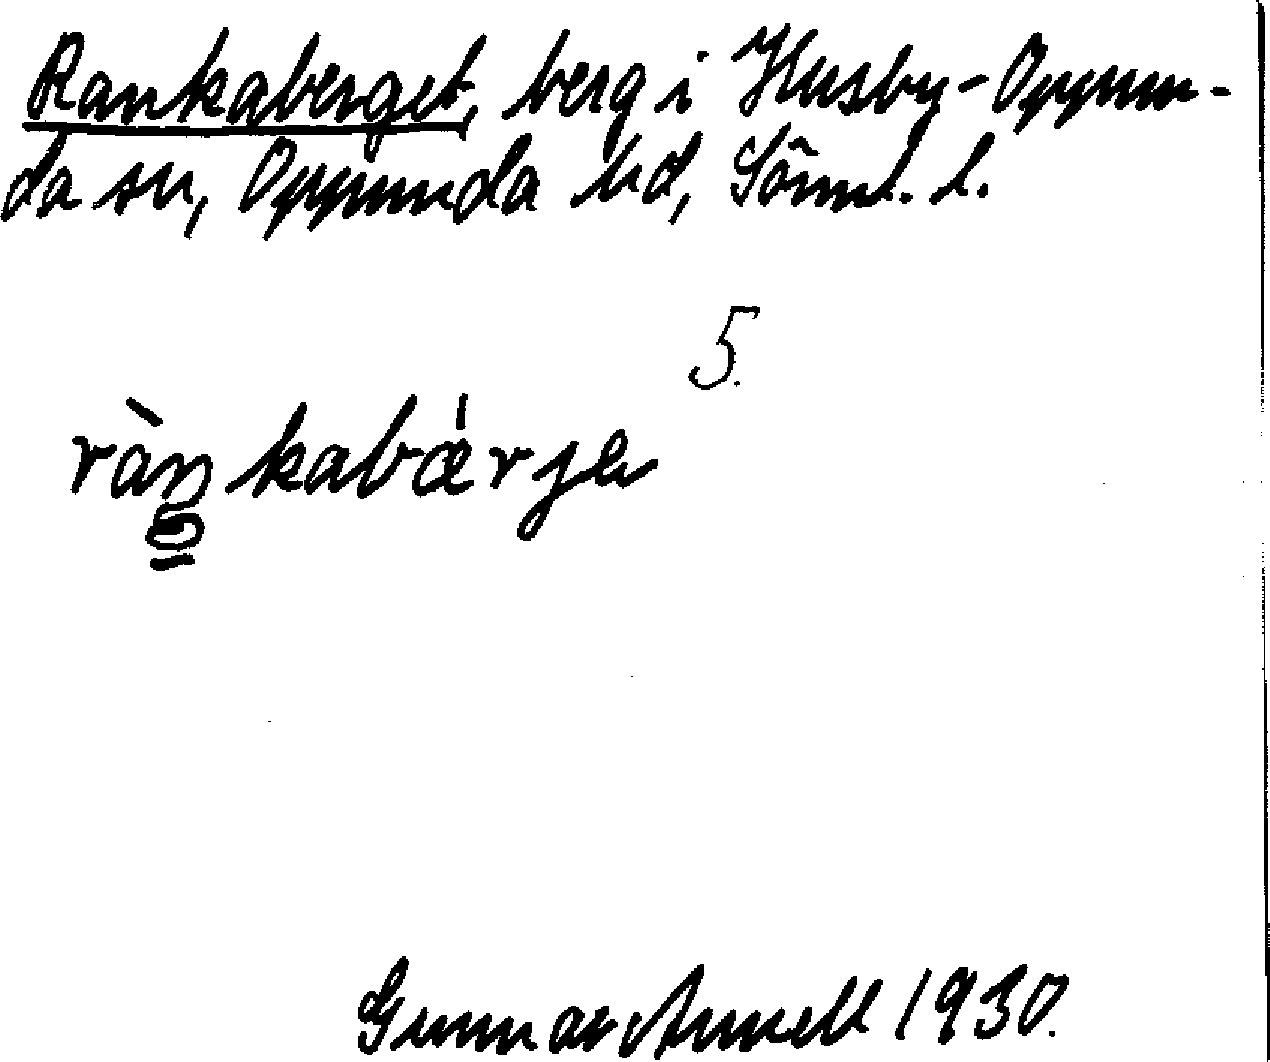 Rankaberget, berg i Husby-Oppun-
da sn, Oppunda hd, Söml. l.
5.
ràŋkabǽrje
Gunnar Arnell 1930.